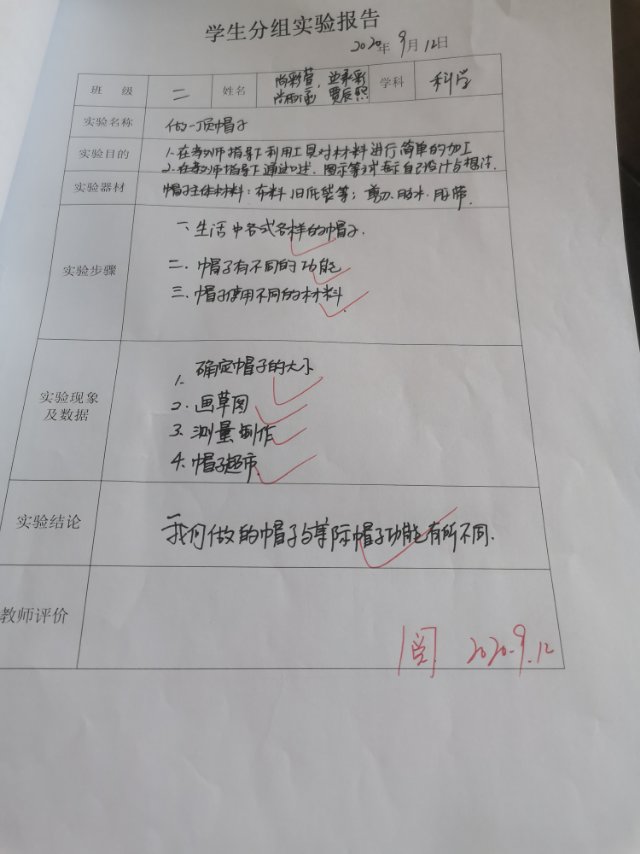 学生分组实验报告
2020年9月12日
班 级 二 姓名 学科 科学
实验名称 做一顶帽子
实验目的 1.在老师指导下利用工具对材料进行简单的加工
2.在老师指导下通过口述、图示等方式表示自己设计与想法.
实验器材 帽子主体材料:布料 旧纸袋等;剪刀.胶水.胶带.
实验步骤
一、生活中各式各样的帽子.
二、帽子有不同的功能
三、帽子使用不同的材料
实验现象及数据
1. 确定帽子的大小
2.画草图
3.测量制作
4.帽子超市.
实验结论 我们做的帽子与实际帽子功能有所不同.
教师评价
阅 2020.9.12